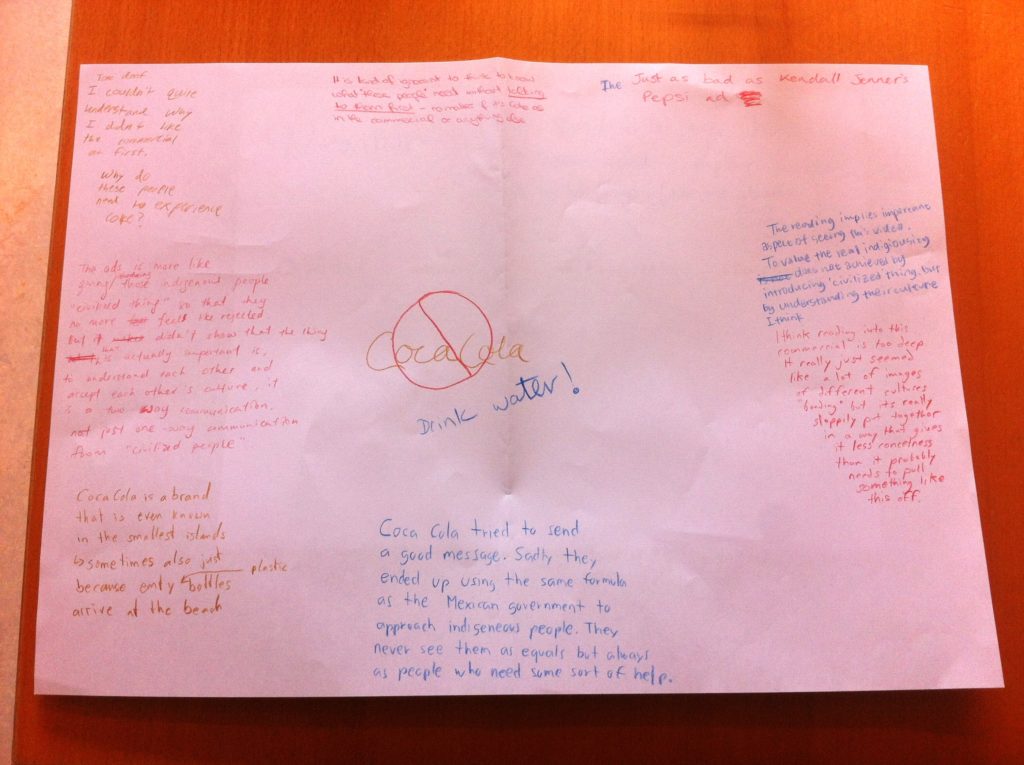 I couldn't quite
understand why
I didn't like
the commercial
at first.
Why do
these people
need to experience
coke?
It is kind of ignorant to think to know
what these people need without talking
to them first - no matter if it's Coke as
in the commercial or anything else
The Just as bad as Kendall Jenner's
Pepsi ad
The ads is more like
giving those indigenous people
"civilized thing" so that they
no more feel like rejected.
But it didn't show that the thing
is actually important is,
to understand each other and
accept each other's culture, it
is a two way communication,
not just one-way communication
from "civilized people"
CocaCola is a brand
that is even known
in the smallest islands
↳ sometimes also just
because emty plastic bottles
arrive at the beach
CocaCola
Drink water!
Coca Cola tried to send
a good message. Sadly they
ended up using the same formula
as the Mexican government to
approach indigeneous people. They
never see them as equals but always
as people who need some sort of help.
The reading implies important
aspect of seeing this video.
To value the real indigiousing
does not achieved by
introducing 'civilized thing, but
by understanding their culture
I think.
I think reading into this
commercial is too deep
It really just seemed
like a lot of images
of different cultures
"bonding" but its really
sloppily put together
in a way that gives
it less
than it probably
needs to pull
something like
this off.